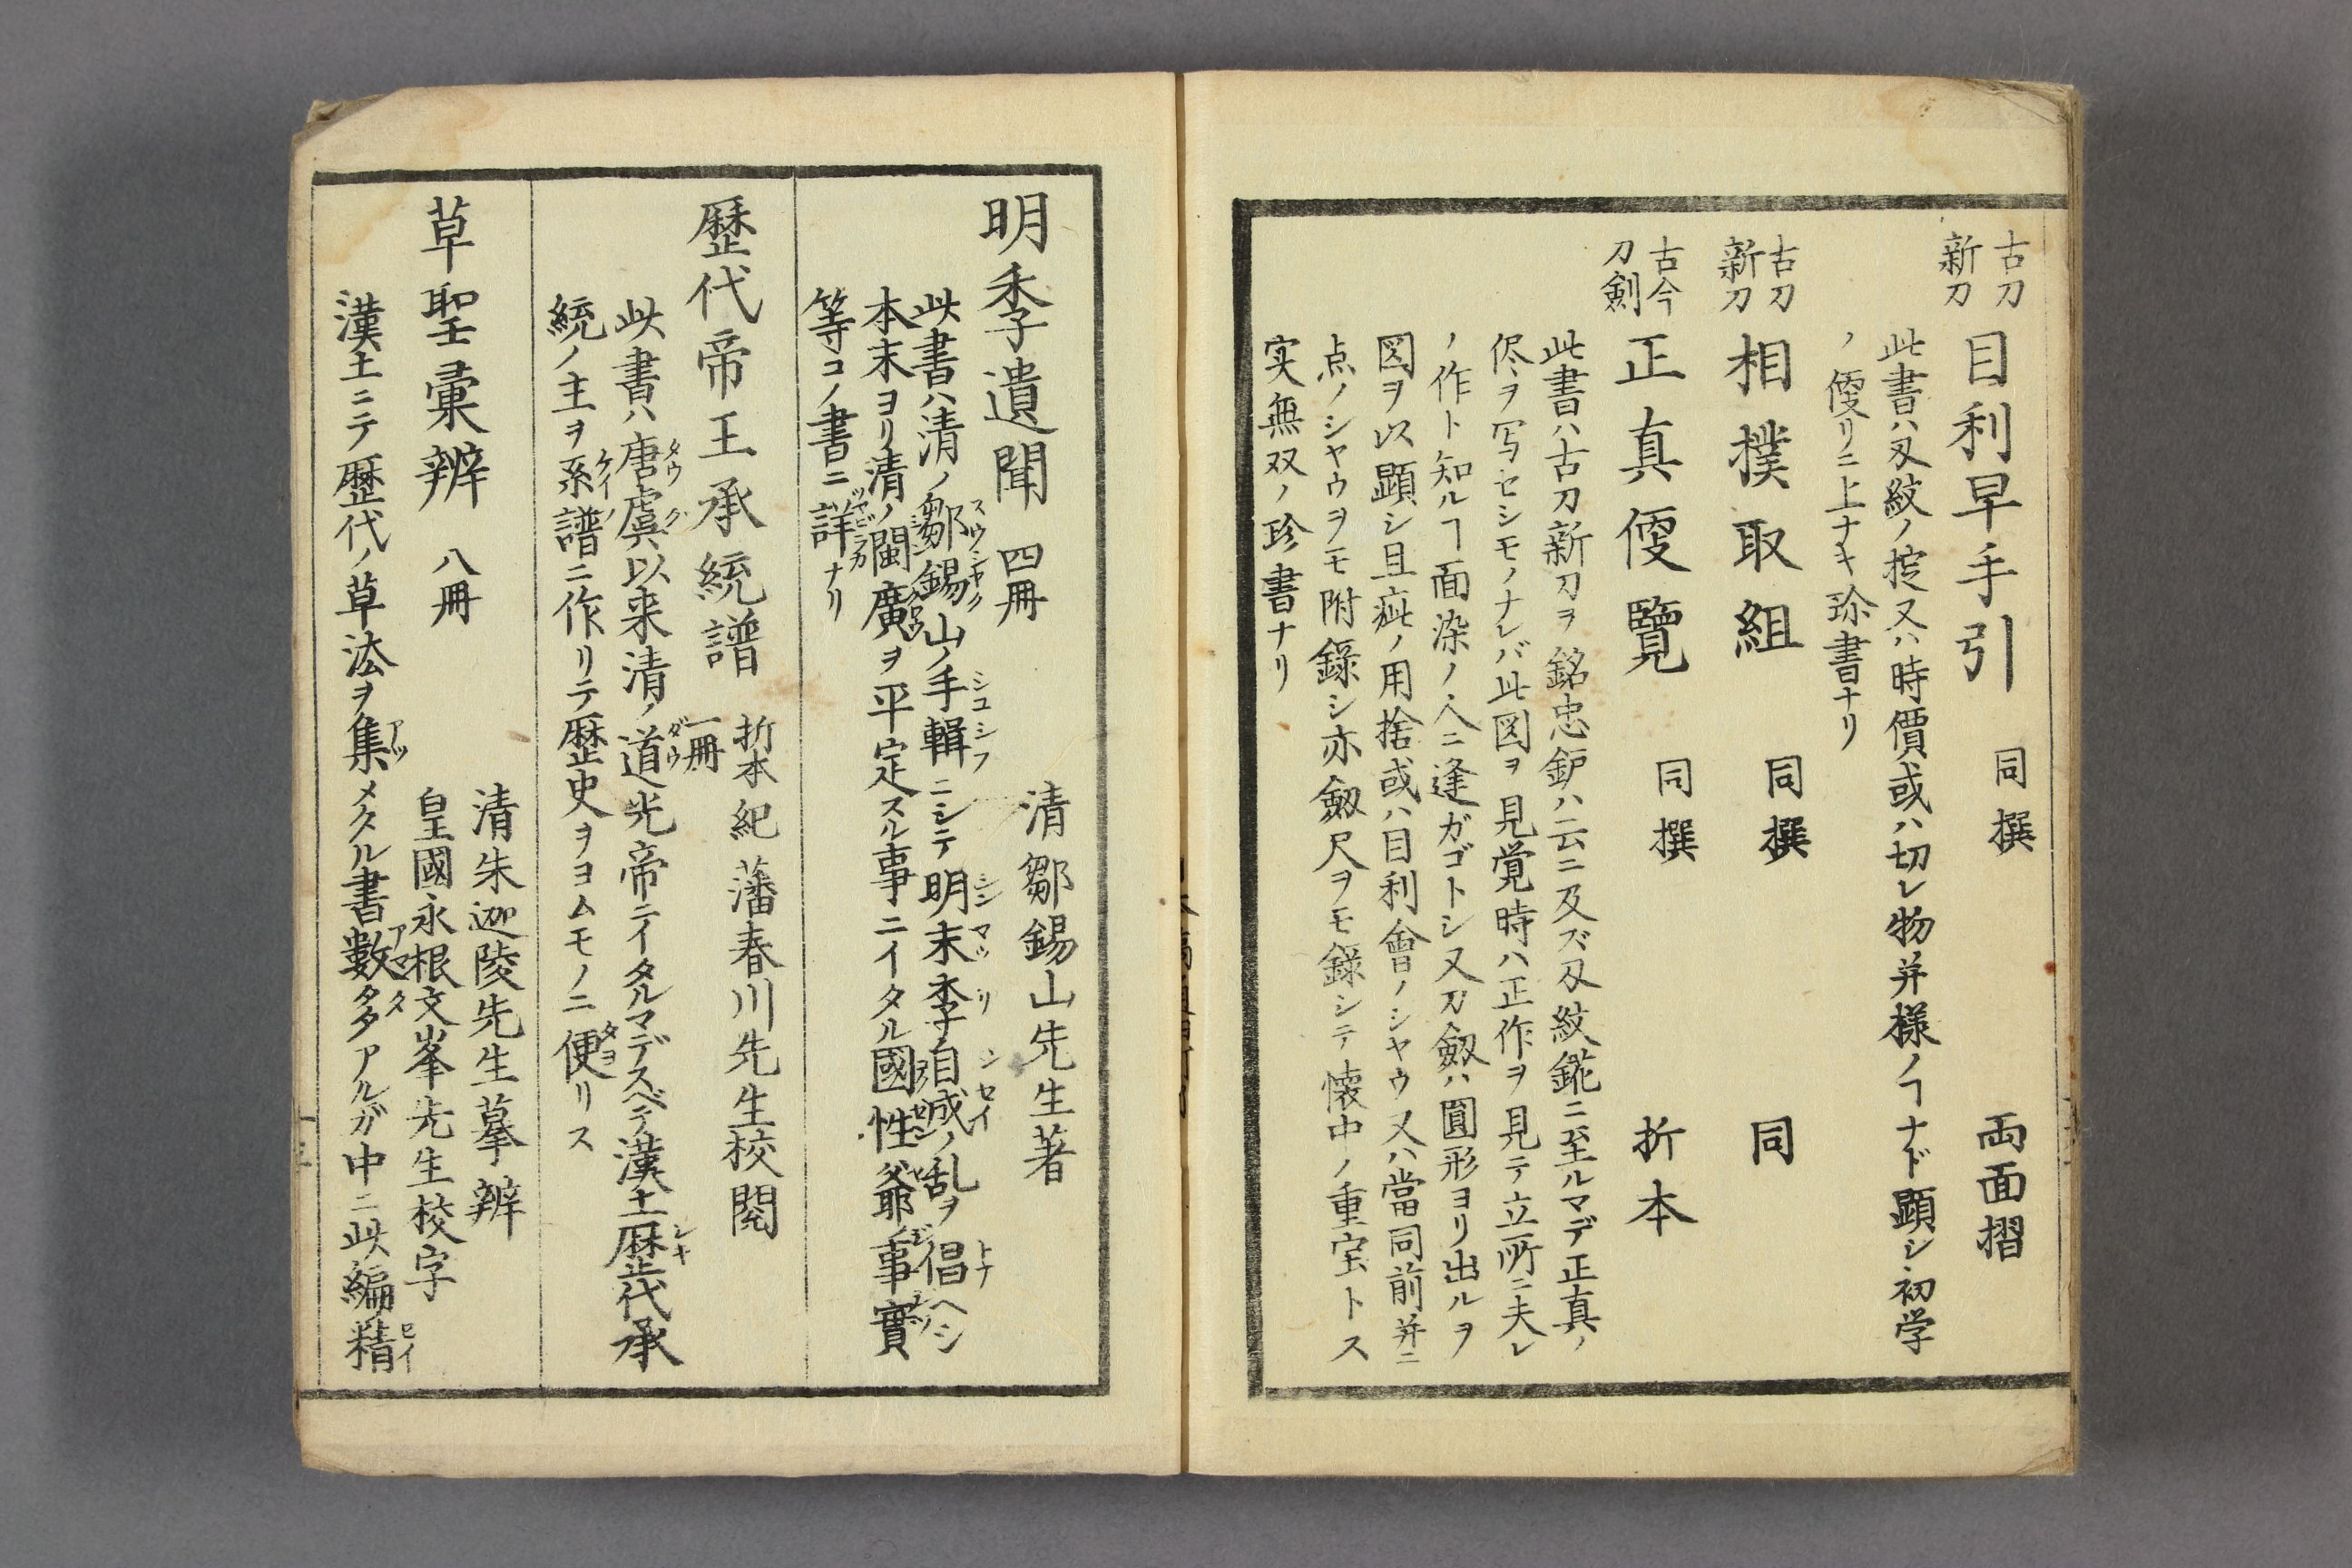 古刀
新刀
目利早手引 同撰 両面摺
此書ハ刃紋ノ掟又ハ時價或ハ切レ物并様ノヿナド顕シ初学
ノ便リニ上ナキ珍書ナリ
古刀
新刀
相撲取組 同撰 同
古今
刀劍
正真便覽 同撰 折本
此書ハ古刀新刀ヲ銘忠鈩ハ云ニ及ズ刃紋鑢ニ至ルマデ正真ノ
侭ヲ写セシモノナレバ此図ヲ見覚時ハ正作ヲ見テ立所ニ夫レ
ノ作ト知ルヿ面染ノ人ニ逢ガゴトシ又刀劔ハ圓形ヨリ出ルヲ
図ヲ以顕シ且疵ノ用捨或ハ目利會ノシヤウ又ハ當同前并ニ
点ノシヤウヲモ附錄シ亦劔尺ヲモ錄シテ懐中ノ重宝トス
実無双ノ珍書ナリ
明季遺聞 四冊 清鄒錫山先生著
此書ハ清ノ鄒錫山ノ手輯ニシテ明末李自成ノ乱ヲ倡ヘシ
本末ヨリ清ノ閩廣ヲ平定スル事ニイタル國性爺ノ事實
等コノ書ニ詳ナリ
歴代帝王承統譜 折本一冊 紀藩春川先生校閲
此書ハ唐虞以来清ノ道光帝ニイタルマデスベテ漢土歴代承
統ノ主ヲ系譜ニ作リテ歴史ヲヨムモノニ便リス
草聖彙辨 八冊
清朱迦陵先生摹辨
皇國永根文峯先生校字
漢土ニテ歴代ノ草法ヲ集メタル書數多アルガ中ニ此編ノ精